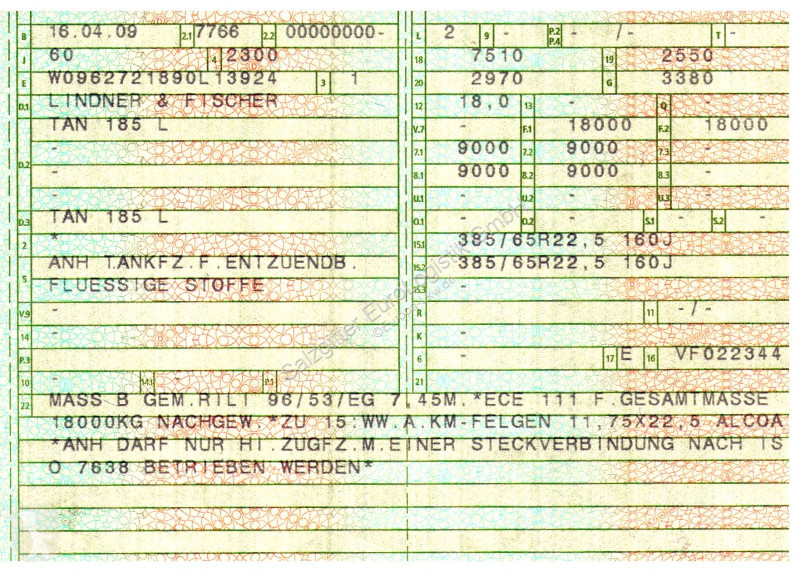 B 16.04.09 2.1 7766 2.2 00000000- L 2 9 - P.2 P.4 - /- T -
J 60 4 2300 18 7510 19 2550
E W0962721890L13924 3 1 20 2970 G 3380
D.1 LINDNER & FISCHER 12 18,0 13 - Q -
TAN 185 L V.7 - F.1 18000 F.2 18000
- 7.1 9000 7.2 9000 7.3 -
D.2 - 8.1 9000 8.2 9000 8.3 -
- U.1 - U.2 - U.3 -
D.3 TAN 185 L O.1 - O.2 - S.1 - S.2 -
2 * 15.1 385/65R22,5 160J
ANH TANKFZ.F.ENTZUENDB. 15.2 385/65R22,5 160J
5 FLUESSIGE STOFFE 15.3 -
V.9 - R 11 - / -
14 - K -
P.3 6 - 17 E 16 VF022344
10 - 14.1 P.1 21
22 MASS B GEM.RILI 96/53/EG 7,45M.*ECE 111 F.GESAMTMASSE
18000KG NACHGEW.*ZU 15:WW.A.KM-FELGEN 11,75X22,5 ALCOA
*ANH DARF NUR HI.ZUGFZ.M.EINER STECKVERBINDUNG NACH IS
O 7638 BETRIEBEN WERDEN*
Salzgitter Eurologistik GmbH